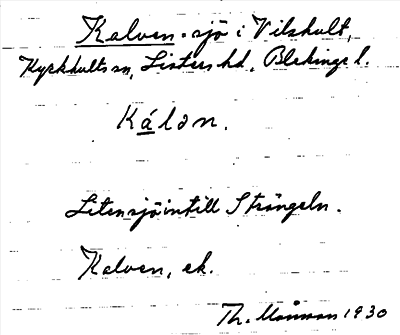 Kalven - sjö i Vilshult,
Kyrkhults sn, Listers hd, Blekinge l.
Kálən.
Liten sjö intill Strångeln.
Kalven, ek.
Th. 1930